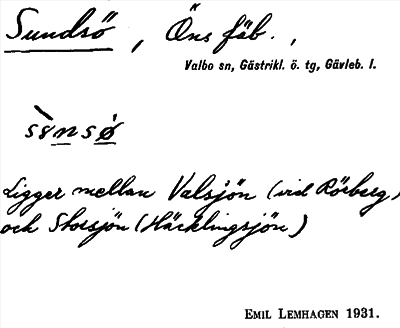 Sundsö, Öns fäb.,
Valbo sn, Gästrikl. ö. tg, Gävleb. l.
Ligger mellan Valsjön (vid Rörberg)
och Storsjön (Häcklingsjön)
EMIL LEMHAGEN 1931.